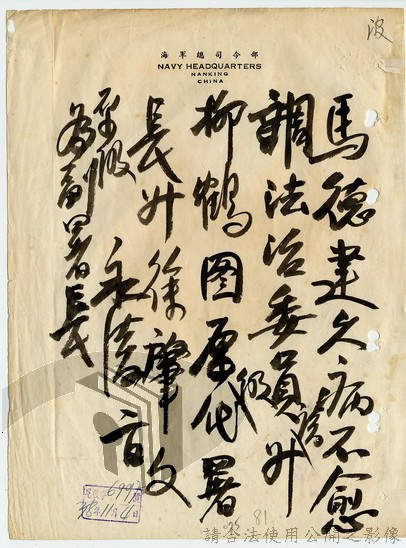 海軍總司令部
NAVY HEADQUARTERS
NANKING
CHINA
馬德建久病不愈
調法治委員 升
柳鶴图原代署
長升徐肇
為副署長
永清
11月21日
81
請合法使用公開之影像